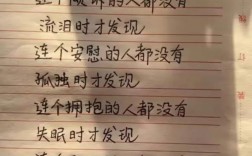 的人都没有
流泪时才发现
连个安慰的人都没有
孤独时才发现
连个拥抱的人都没有
失眠时才发现